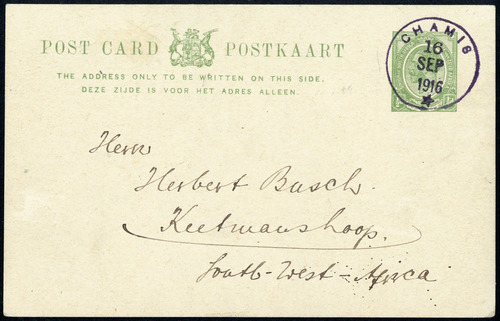 POST CARD POSTKAART
THE ADDRESS ONLY TO BE WRITTEN ON THIS SIDE.
DEZE ZIJDE IS VOOR HET ADRES ALLEEN.
CHAMIS
16
SEP
1916
Herrn
Herbert Busch.
Keetmanshoop.
South-West-Africa